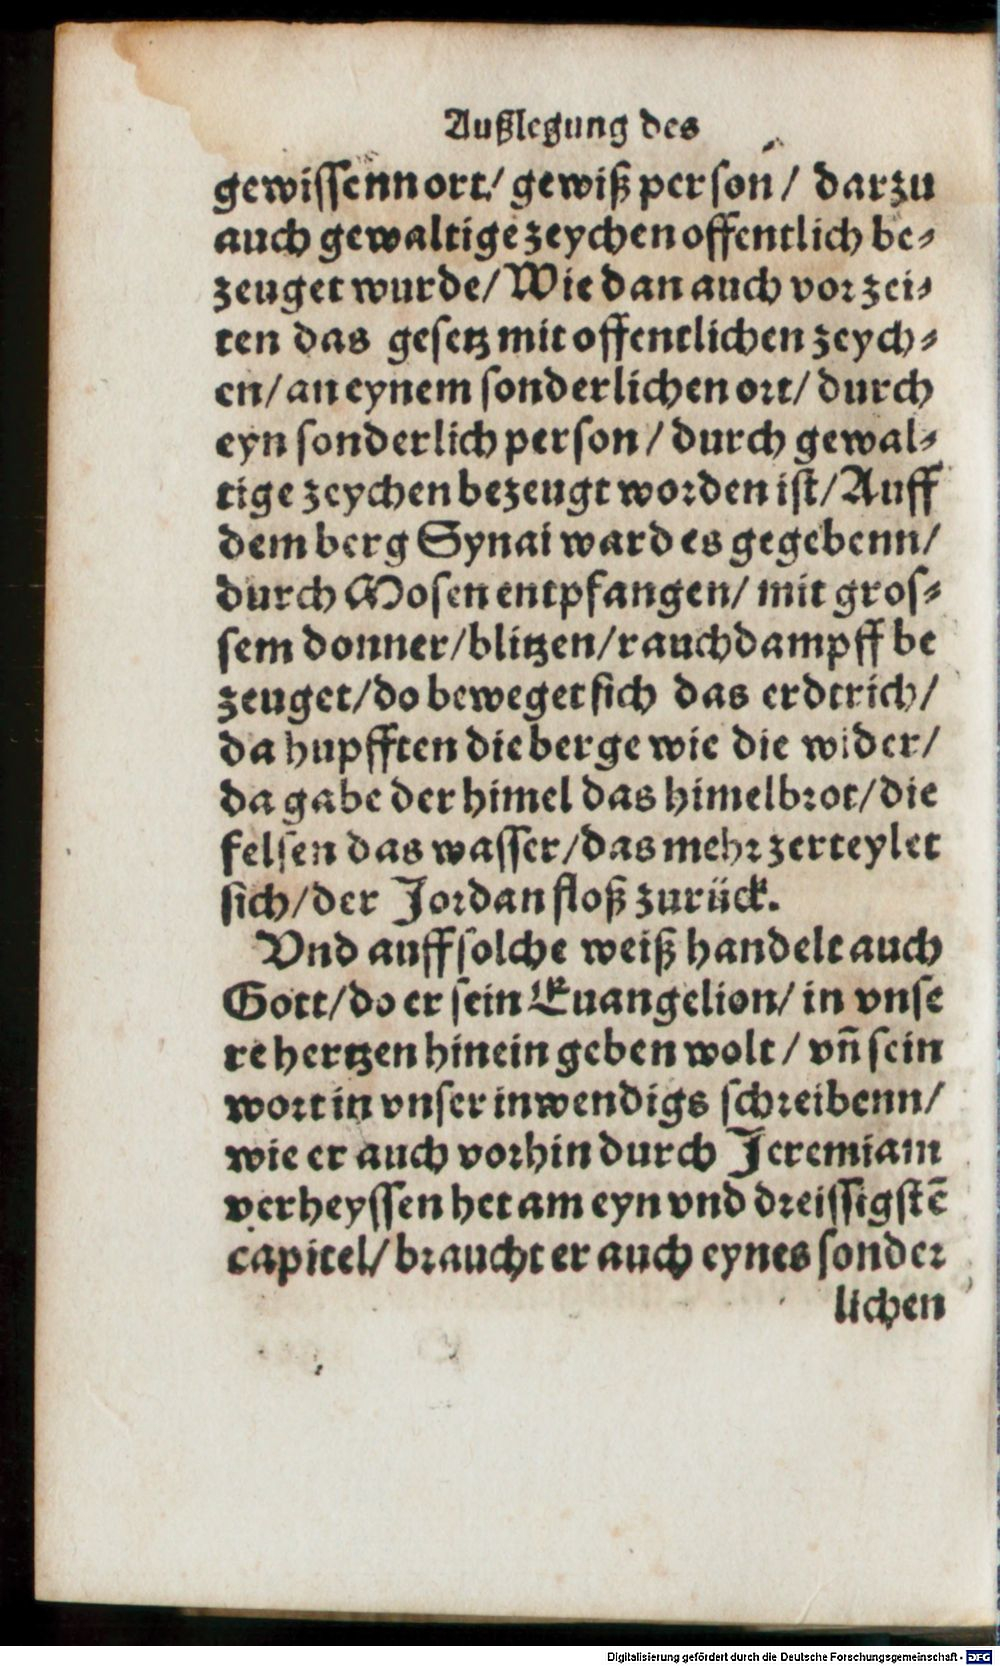 Außlegung des
gewissenn ort/ gewiß person/ darzu
auch gewaltige zeychen offentlich be⸗
zeuget wurde/ Wie dan auch vor zei⸗
ten das gesetz mit offentlichen zeych⸗
en/ an eynem sonderlichen ort/ durch
eyn sonderlich person/ durch gewal⸗
tige zeychen bezeugt worden ist/ Auff
dem berg Synai ward es gegebenn/
durch Mosen entpfangen/ mit gros⸗
sem donner/ blitzen/ rauchdampff be
zeuget/ do beweget sich das erdtrich/
da hupfften die berge wie die wider/
da gabe der himel das himelbrot/ die
felsen das wasser/ das mehr zerteylet
sich/ der Jordan floß zurück.
Vnd auff solche weiß handelt auch
Gott/ do er sein Euangelion/ in vnse
re hertzen hinein geben wolt/ vñ sein
wort in vnser inwendigs schreibenn/
wie er auch vorhin durch Jeremiam
verheyssen het am eyn vnd dreissigstẽ
capitel/ braucht er auch eynes sonder
lichen
Digitalisierung gefördert durch die Deutsche Forschungsgemeinschaft - DFG